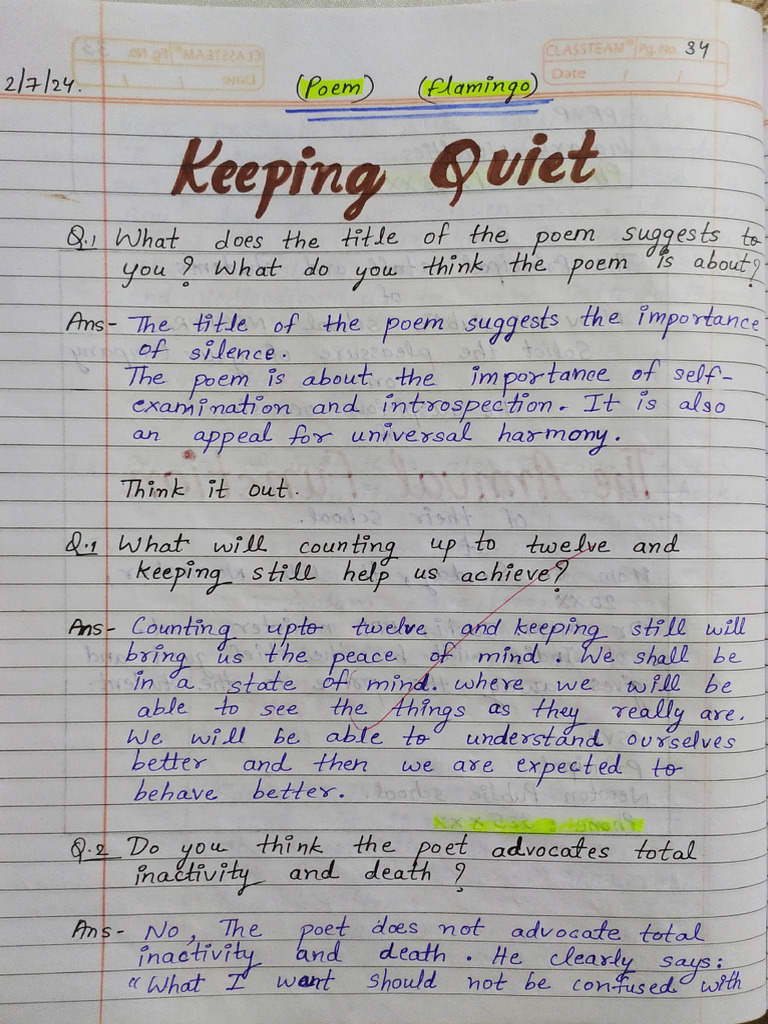 CLASSTEAM® Pg. No. 34
Date / /
2/7/24.
(Poem) (flamingo)
Keeping Quiet
Q.1 What does the title of the poem suggests to
you? What do you think the poem is about?
Ans- The title of the poem suggests the importance
of silence.
The poem is about the importance of self-
examination and introspection. It is also
an appeal for universal harmony.
Think it out.
Q.1 What will counting up to twelve and
keeping still help us achieve?
Ans- Counting upto twelve and keeping still will
bring us the peace of mind. We shall be
in a state of mind. where we will be
able to see the things as they really are.
We will be able to understand ourselves
better and then we are expected to
behave better.
Q.2 Do you think the poet advocates total
inactivity and death?
Ans- No, The poet does not advocate total
inactivity and death. He clearly says:
"What I want should not be confused with